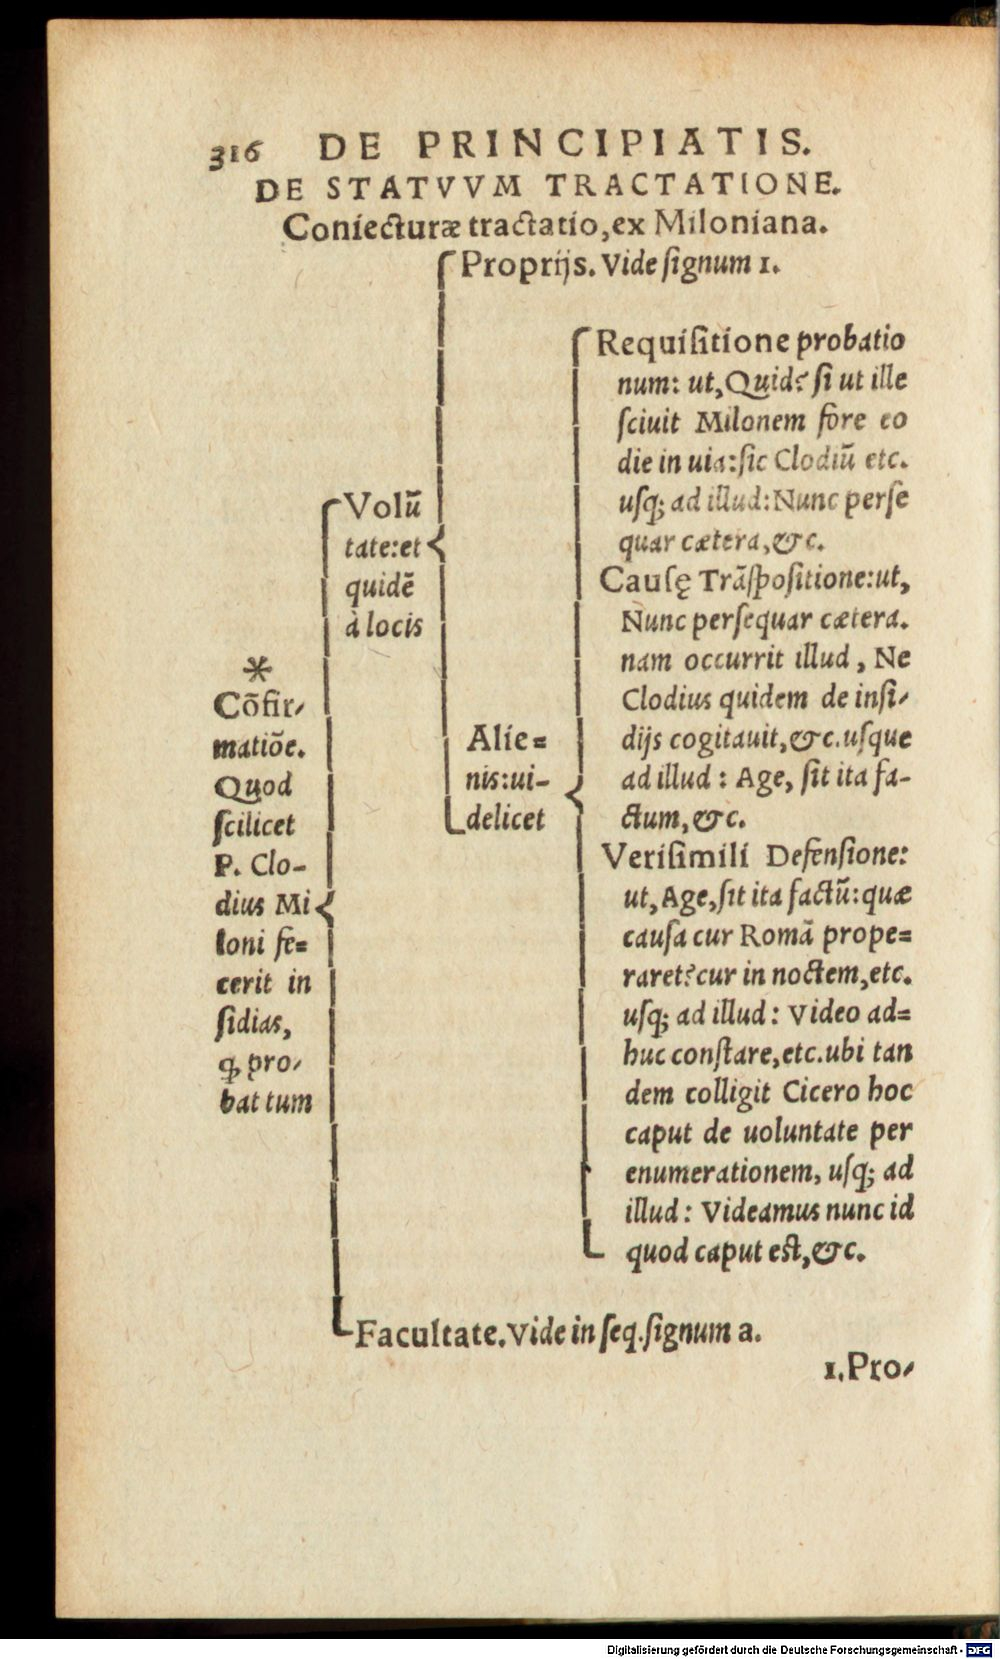 316 DE PRINCIPIATIS.
DE STATVVM TRACTATIONE.
Coniecturæ tractatio, ex Miloniana.
*
Cõfir-
matiõe.
Quod
scilicet
P. Clo-
dius Mi
loni fe=
cerit in
sidias,
ꝙ pro-
bat tum
Volũ
tate: et
quidẽ
à locis
Proprijs. Vide signum 1.
Alie=
nis: ui-
delicet
Requisitione probatio
num: ut, Quid? si ut ille
sciuit Milonem fore eo
die in uia: sic Clodiũ etc.
usq; ad illud: Nunc perse
quar cætera, &c.
Causę Trãspositione: ut,
Nunc persequar cætera.
nam occurrit illud, Ne
Clodius quidem de insi-
dijs cogitauit, &c. usque
ad illud: Age, sit ita fa-
ctum, &c.
Verisimili Defensione:
ut, Age, sit ita factũ: quæ
causa cur Romã prope=
raret? cur in noctem, etc.
usq; ad illud: Video ad=
huc constare, etc. ubi tan
dem colligit Cicero hoc
caput de uoluntate per
enumerationem, usq; ad
illud: Videamus nunc id
quod caput est, &c.
Facultate. Vide in seq. signum a.
1. Pro-
Digitalisierung gefördert durch die Deutsche Forschungsgemeinschaft - DFG